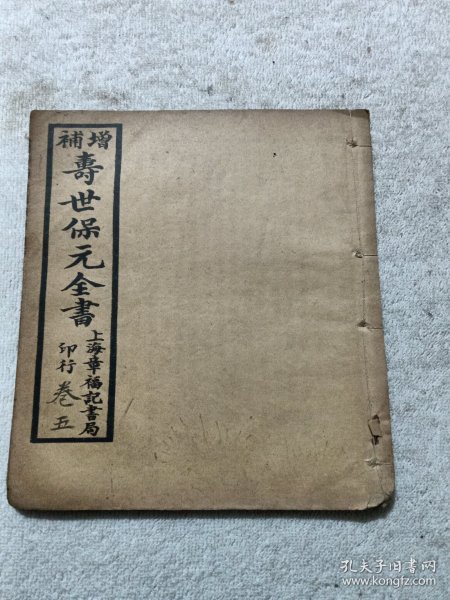 增補
壽世保元全書
上海章福記書局
印行
卷五
孔夫子旧书网
www.kongfz.com